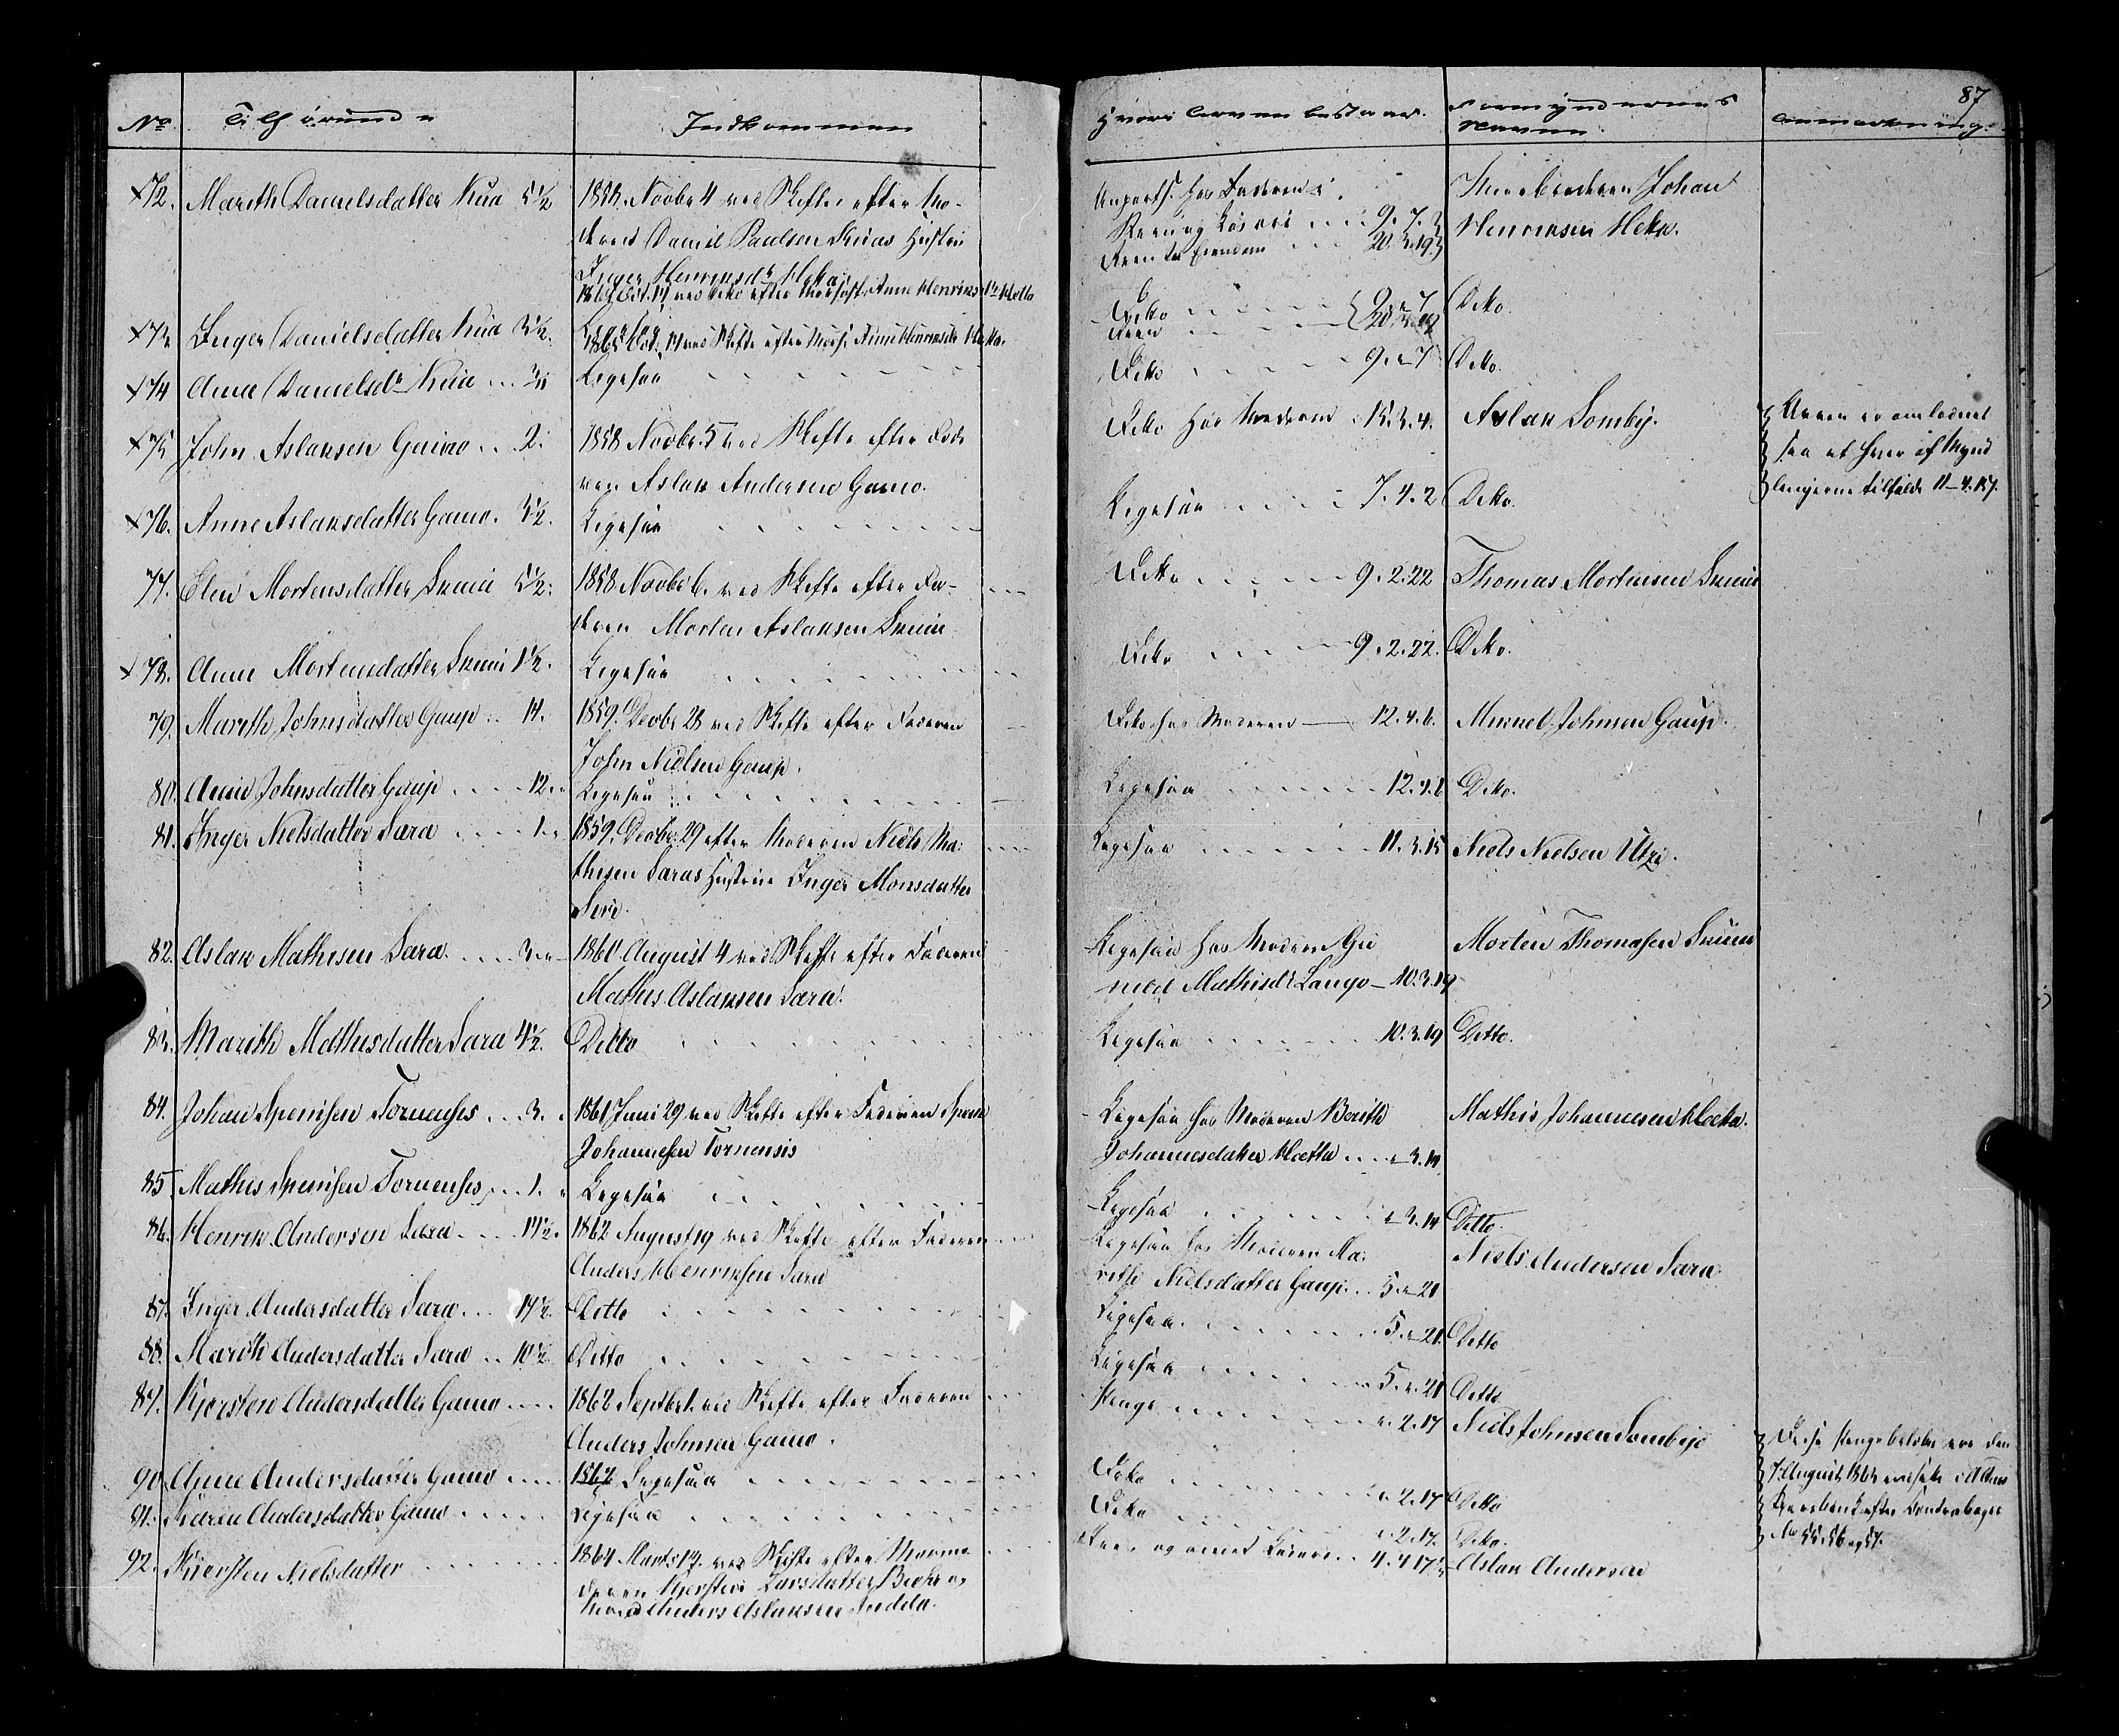 87
No Tilhørende Indkommen Hvori Arven bestaar. Formyndernes
Navne. Anmærkning.
72. Marith Danielsdatter Kua 5½ 1858 Novbr 4 ved Skifte efter Mo-
deren Daniel Paulsen Kuas Hustru
Inger Henriksdr Hetta
hos Faderen
9. 7.
20. 3. 19
Johan
Henriksen Hetta.
73. Inger Danielsdatter Kua 3½ Ligesaa
Ditto 9 " 7 Ditto.
74 Anne Danielsdr Kua Ligesaa
Ditto 9 " 7 Ditto.
75 John Aslaksen Gaino 2. 1858 Novbr. 5 ved Skifte efter Fade-
ren Aslak Andersen Gaino.
Ditto hos Moderen 15. 3. 4. Aslak Somby.
Arven er omlodnet
saa at hver af Mynd
lingerne tilfalde 11-4.
76. Anne Aslaksdatter Gaino. 3½. Ligesaa
Ligesaa 7. 4. 2 Ditto.
77. Elen Mortensdatter Skum 5½. 1858 Novbr 6. ved Skifte efter Fa-
deren Morten Aslaksen Skum
Ditto 9. 2. 22 Thomas Mortensen Skum
78. Anne Mortensdatter Skum 1½. Ligesaa
Ditto 9. 2. 22. Ditto.
79. Marith Johnsdatter Gaup 14. 1859. Decbr 28 ved Skifte efter Faderen
John Nielsen Gaup.
Ditto hos Moderen 12. 4. 6. Mikkel Johnsen Gaup.
80. Anne Johnsdatter Gaup 12. Ligesaa
Ligesaa 12. 4. 6 Ditto.
81. Inger Nielsdatter Sara 1. 1859. Decbr 29 efter Moderen Niels Ma-
thisen Saras Hustru Inger Monsdatter
Siri.
Ligesaa 11. 3. 15 Niels Nielsen Utzi.
82. Aslak Mathisen Sara. 3. 1860 August 4 ved Skifte efter Faderen
Mathis Aslaksen Sara.
Ligesaa hos Moderen Gu
nild Mathisdr Lango 10. 3. 19
Morten Thomasen Skum
83. Marith Mathisdatter Sara 4½. Ditto
Ligesaa 10. 3. 19 Ditto.
84. Johan Spenisen Tornensis 3. 1861 Juni 29 ved Skifte efter Faderen Spenn
Johannesen Tornensis
Ligesaa hos Moderen Berith
Johannesdatter Hætta " 3. 14
Mathis Johannesen Hætta.
85. Mathis Spenisen Tornensis 1. Ligesaa
Ligesaa " 3. 14 Ditto.
86. Henrik Andersen Sara 17½. 1862 August 19 ved Skifte efter Faderen
Anders Henriksen Sara
Ligesaa hos Moderen Ma-
rith Nielsdatter Gaup. 5 " 21
Niels Andersen Sara
87. Inger Andersdatter Sara 14½. Ditto
Ligesaa 5 " 21 Ditto
88. Marith Andersdatter Sara 10½ Ditto
Ligesaa 5 " 21 Ditto
89. Kjersten Andersdatter Gaino 1862 Septbr 1. ved Skifte efter Faderen
Anders Johnsen Gaino.
Penge " 2. 17 Niels Johnsen Sombye
Disse Pengebeløbe ere den
7 August 1863 indsatte i Altens
Sparebank efter Contrabøger
No 55. 56 og 57.
90. Anne Andersdatter Gaino 1862 Ligesaa
Ditto " 2. 17 Ditto
91. Karen Andersdatter Gaino Ligesaa
Ditto " 2. 17. Ditto.
92. Kjersten Nielsdatter 1864 Marts 17. ved Skifte efter Mormo-
deren Kjersten Larsdatter
Anders Aslaksen
og andet Løsøre 4. 4 17½ Aslak Andersen